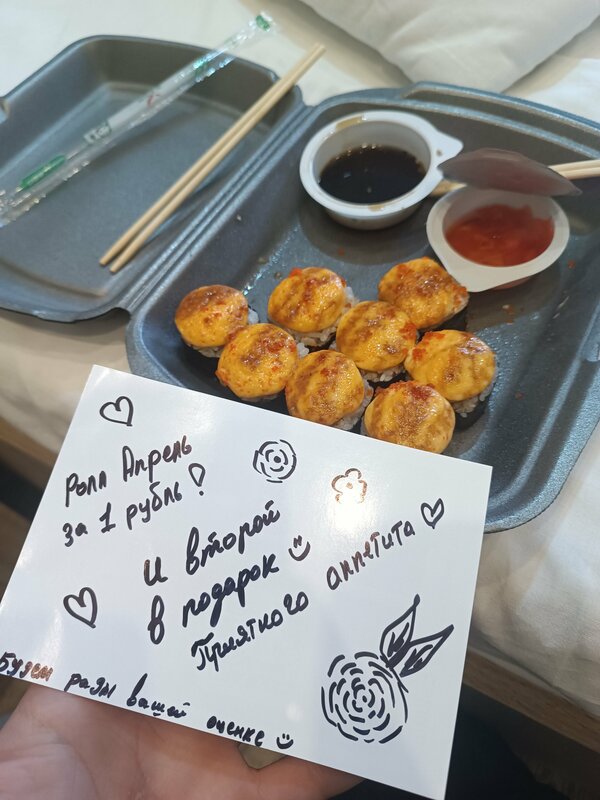 Ролл Апрель
за 1 рубль!
И второй
в подарок
Приятного аппетита
Будем рады вашей оценке